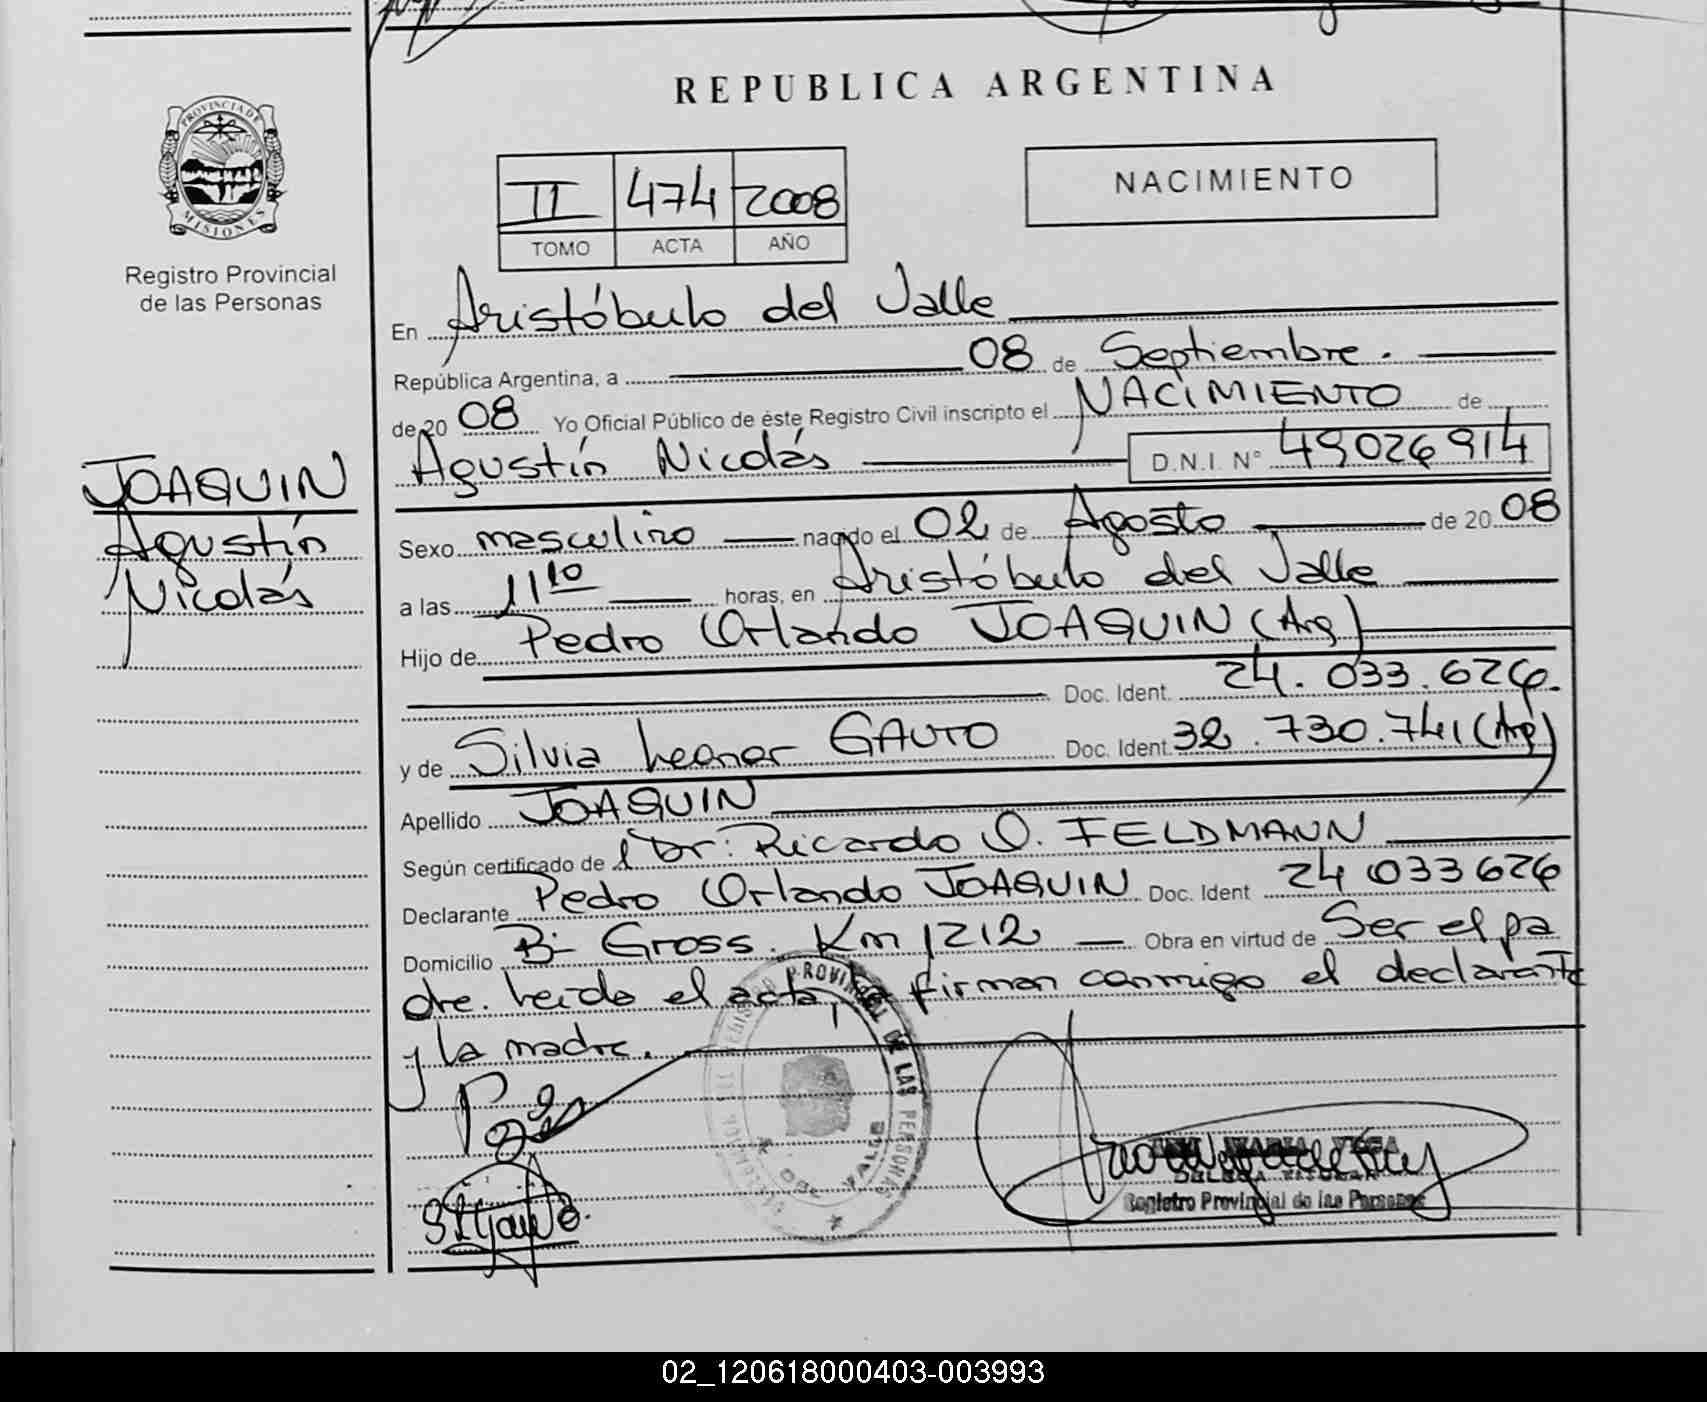 REPUBLICA ARGENTINA
PROVINCIA DE
MISIONES
Registro Provincial
de las Personas
II 474 2008
TOMO ACTA AÑO
NACIMIENTO
En Aristóbulo del Valle
República Argentina, a 08 de Septiembre.
de 20 08 Yo Oficial Público de éste Registro Civil inscripto el NACIMIENTO de
Agustín Nicolás D.N.I. N° 49026914
JOAQUIN
Agustín
Nicolás
Sexo masculino nacido el 02 de Agosto de 20 08
a las 11 10 horas, en Aristóbulo del Valle
Hijo de Pedro Orlando JOAQUIN (Arg)
Doc. Ident. 24.033.626.
y de Silvia Leonor GAUTO Doc. Ident. 32.730.741 (Arg)
Apellido JOAQUIN
Según certificado de l Dr: Ricardo O. FELDMANN
Declarante Pedro Orlando JOAQUIN Doc. Ident 24 033 626
Domicilio Bº Gross. Km 1212 Obra en virtud de Ser el pa
dre. Leída el acta, firman conmigo el declarante
y la madre.
PROVINCIAL DE LAS PERSONAS
DEL VALLE
Registro Provincial de las Personas
02_120618000403-003993